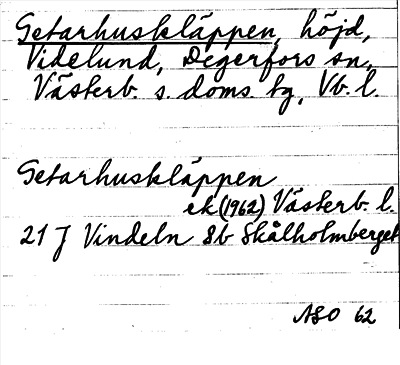 Getarhuskläppen, höjd,
Videlund, Degerfors sn,
Västerb. s. doms. tg, Vb. l.
Getarhuskläppen
ek (1962) Västerb. l.
21 J Vindeln 8b Skålholmberget
ASO 62